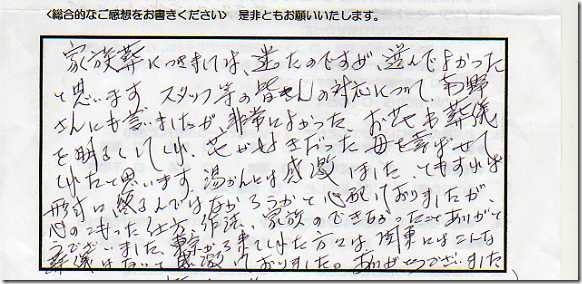 <総合的なご感想をお書きください>　是非ともお願いいたします。
家族葬につきましては、迷たのですが、選んでよかった
と思います スタッフ等の皆さんの対応について、
さんにも言いましたが、非常によかった、お花も葬儀
を明るくしてくれ、花が好きだった母を喜ばせて
くれたと思います。湯かんとは感激しました、ともすれば
形式に終るんではなかろうかと心配しておりましたが、
心のこもった仕方、作法、家族のできなかったことありがと
うございました、東京から来てくれた方々は、関東にはこんな
葬儀はないと感激しておりました。ありがとうございました